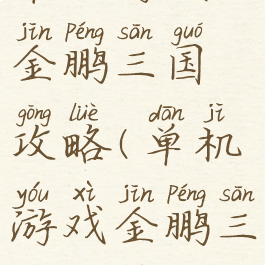 jīn Péng sān guó
金鹏三国
gōng lüè ( dān jī
攻略(单机
yóu xì jīn Péng sān
游戏金鹏三